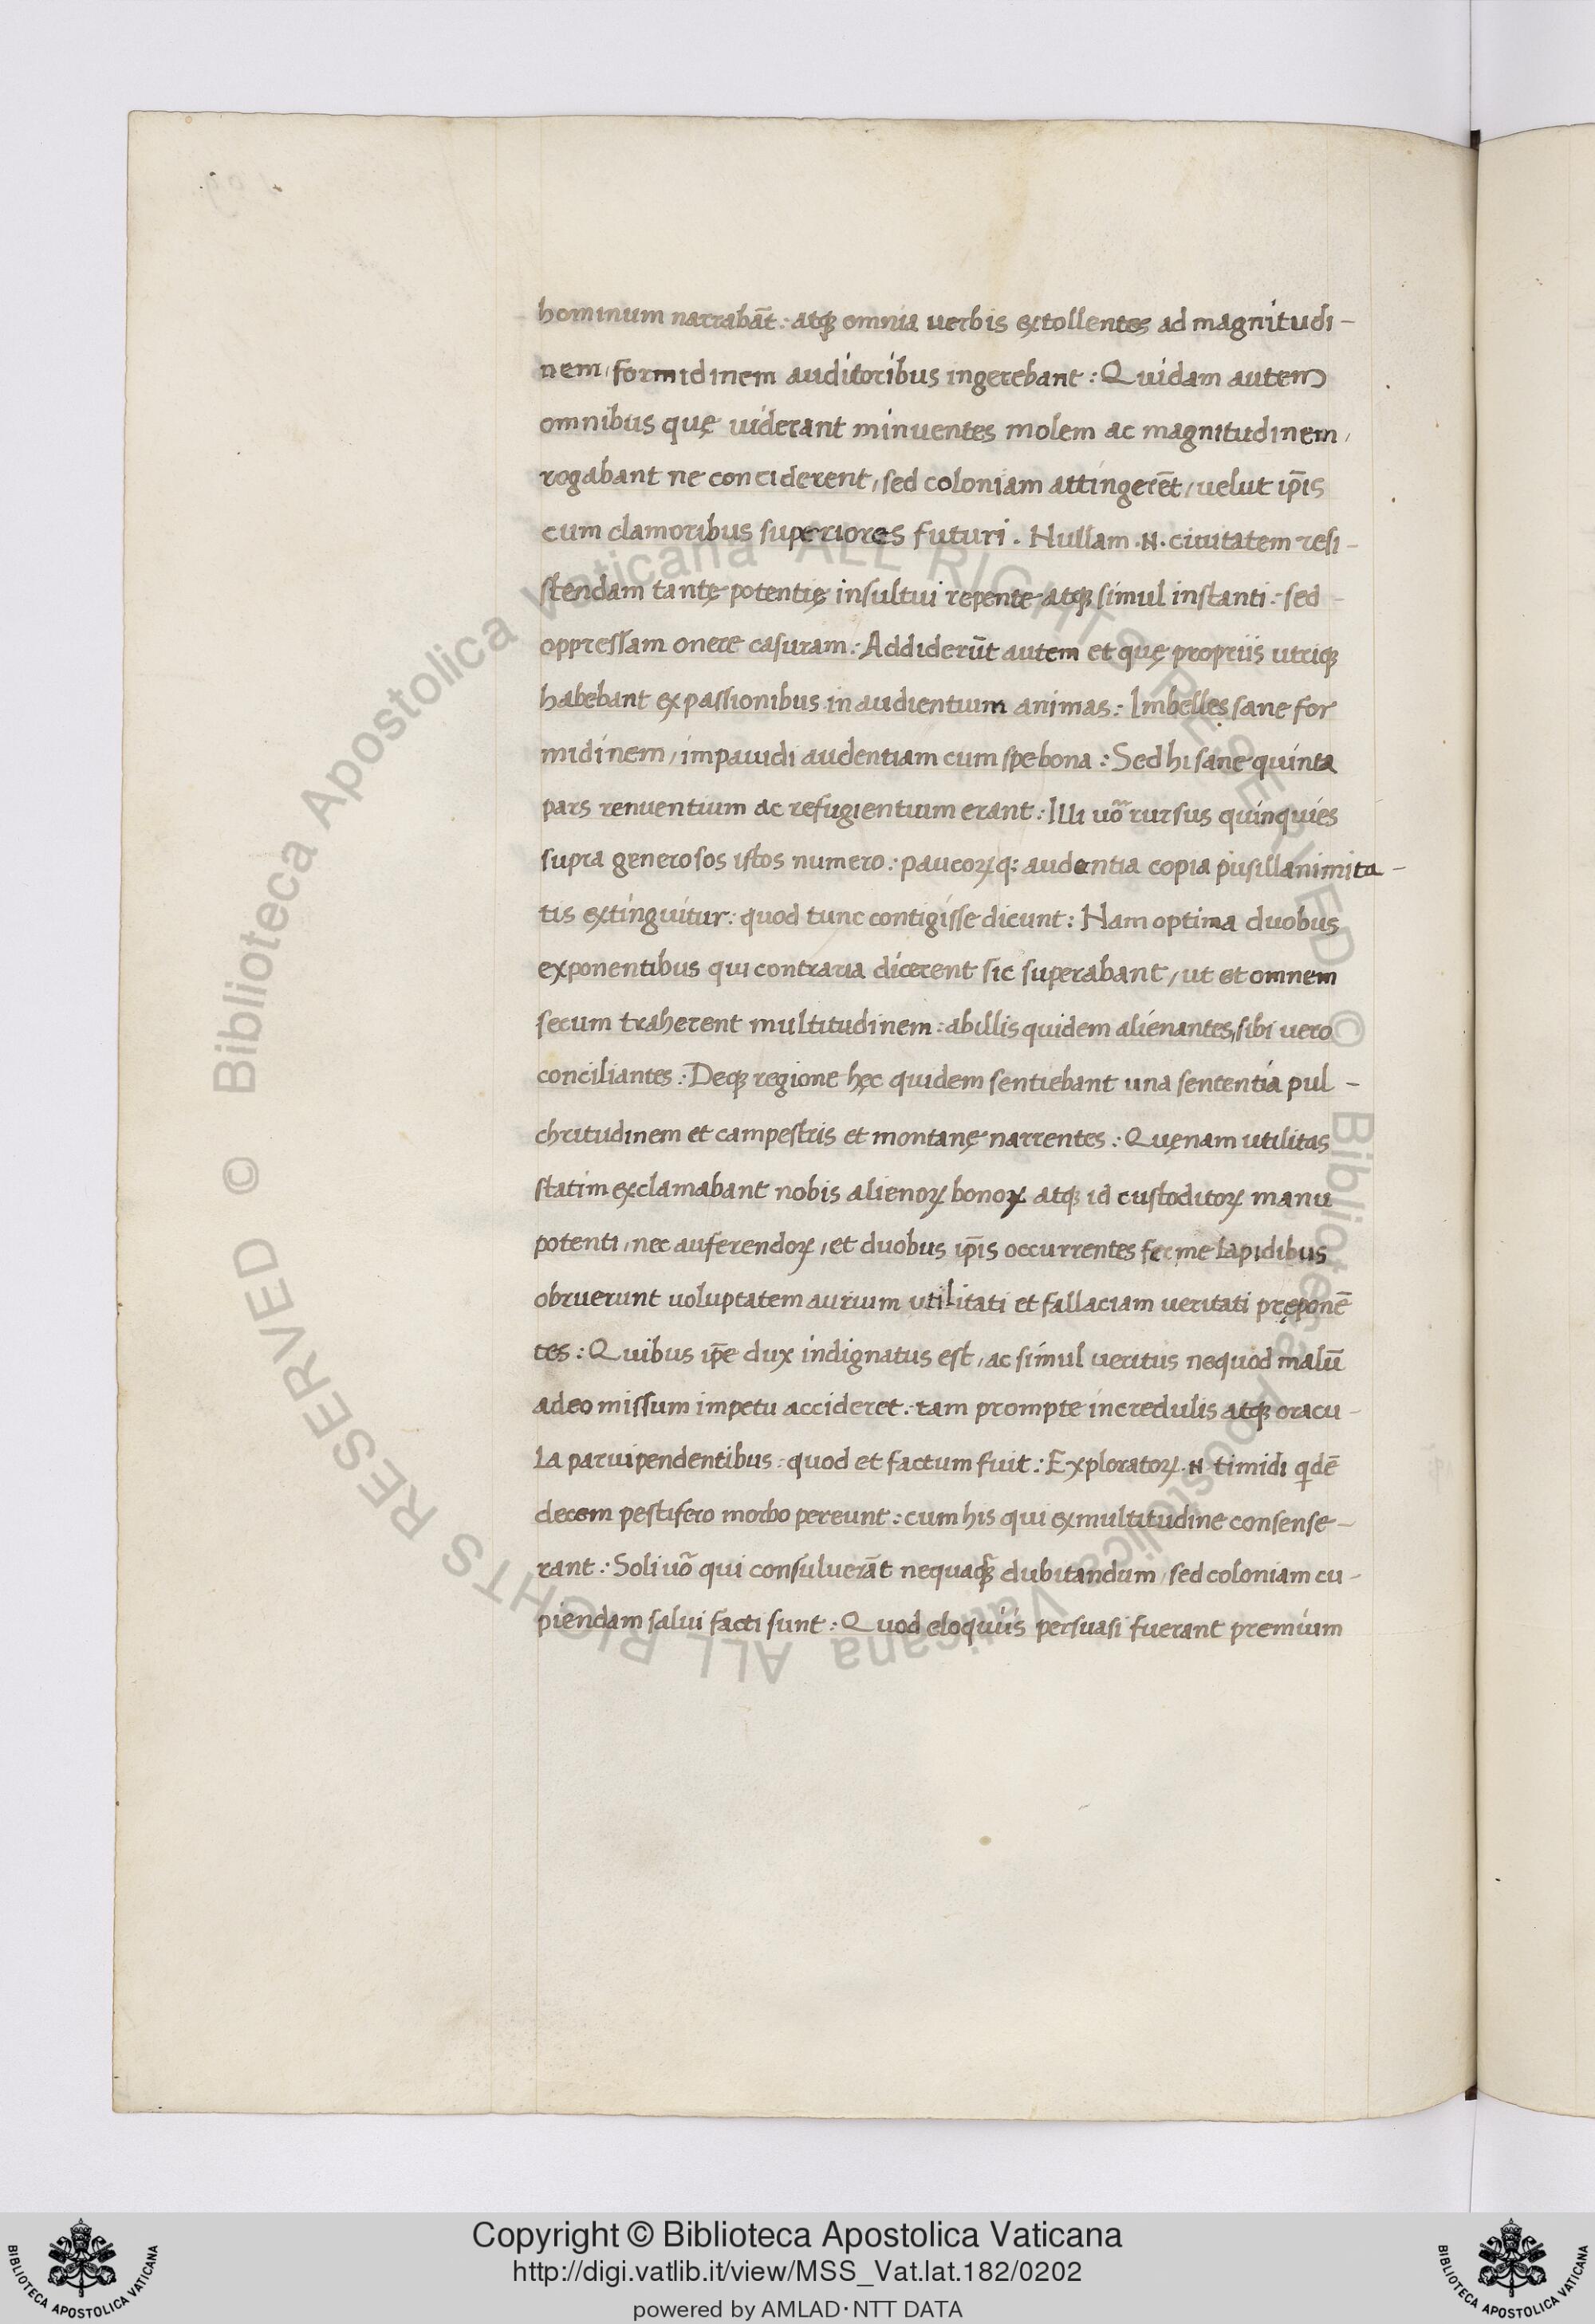 hominum narrabāt: atqȝ omnia uerbis extollentes ad magnitudi-
nem, formidinem auditoribus ingerebant: Quidam autem
omnibus quę uiderant minuentes molem ac magnitudinem,
rogabant ne conciderent, sed coloniam attingerēt, uelut ip̄is
cum clamoribus superiores futuri. Nullam .N. ciuitatem resi-
stendam tantę potentię insultui repente atqȝ simul instanti: sed
oppressam onere casuram: Addiderūt autem et quę propriis utriqȝ
habebant ex passionibus in audientium animas: Imbelles sane for
midinem, impauidi audentiam cum spe bona: Sed hi sane quinta
pars renuentium ac refugientium erant: Illi uō rursus quinquies
supra generosos istos numero: paucoꝝ q: audentia copia pusillanimita-
tis extinguitur: quod tunc contigisse dicunt: Nam optima duobus
exponentibus qui contraria dicerent sic superabant, ut et omnem
secum traherent multitudinem: ab illis quidem alienantes, sibi uero
conciliantes: Deqȝ regione hęc quidem sentiebant una sententia pul-
chritudinem et campestris et montanę narrentes: Quęnam utilitas
statim exclamabant nobis alienoꝝ bonoꝝ atqȝ id custoditoꝝ manu
potenti, nec auferendoꝝ, et duobus ip̄is occurrentes ferme lapidibus
obruerunt uoluptatem aurium utilitati et fallaciam ueritati pręponē
tes: Quibus ip̄e dux indignatus est, ac simul ueritus nequod malū
adeo missum impetu accideret: tam prompte incredulis atqȝ oracu-
la paruipendentibus: quod et factum fuit: Exploratoꝝ .N timidi qdē
decem pestifero morbo pereunt: cum his qui ex multitudine consense-
rant: Soli uō qui consuluerāt nequaqȝ dubitandum, sed coloniam cu-
piendam salui facti sunt: Quod eloquiis persuasi fuerant premium
© Biblioteca Apostolica Vaticana ALL RIGHTS RESERVED
© Biblioteca Apostolica Vaticana ALL RIGHTS RESERVED
Copyright © Biblioteca Apostolica Vaticana
http://digi.vatlib.it/view/MSS_Vat.lat.182/0202
powered by AMLAD·NTT DATA
BIBLIOTECA APOSTOLICA VATICANA
BIBLIOTECA APOSTOLICA VATICANA